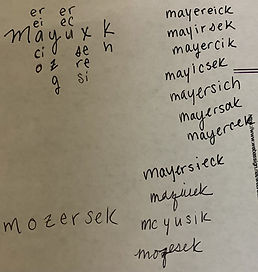 er er
ei ec
mayuxk
ci se h
o z re
g si
mozersek
mayereick
mayirsek
mayercik
mayicsek
mayersich
mayersak
mayercek
mayersieck
mcyusik
mozesek